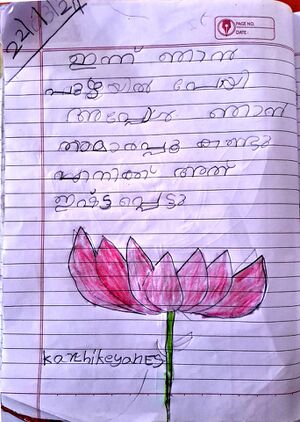 22/10/24
PAGE NO.
DATE:
ഇന്ന് ഞാൻ
പുഴയിൽ പോയി
അപ്പോൾ ഞാൻ
താമരപ്പൂ കണ്ടു
എനിക്ക് അത്
ഇഷ്ട്ടപ്പെട്ടു
karthikeyanES